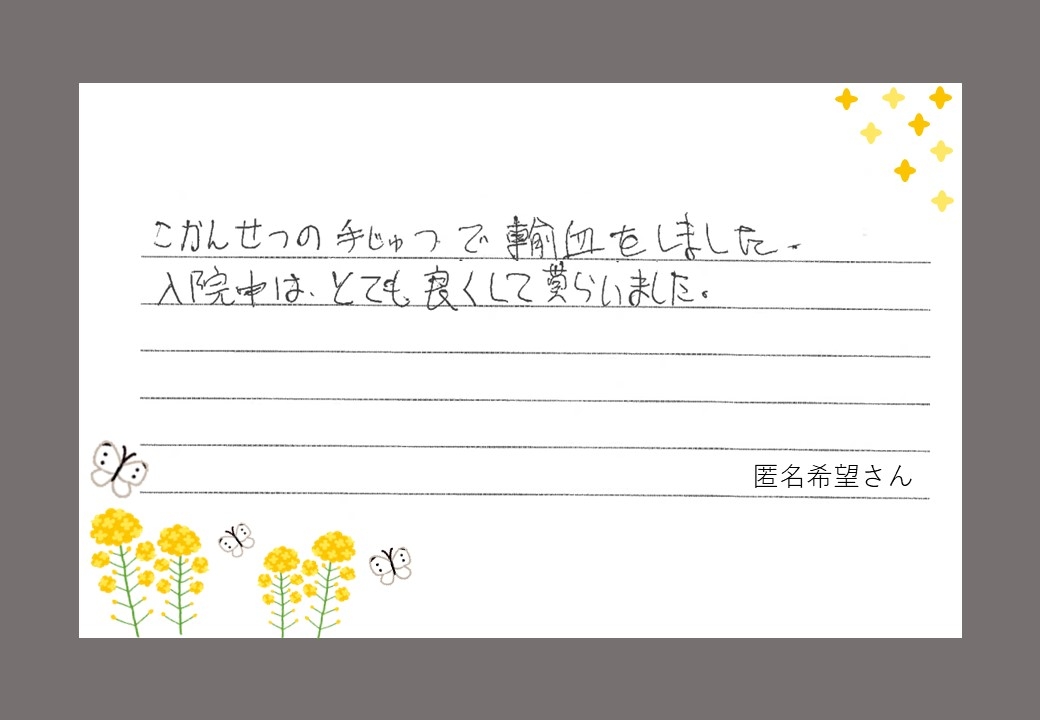 こかんせつの手じゅつで輸血をしました。
入院中は、とても良くして貰らいました。
匿名希望さん